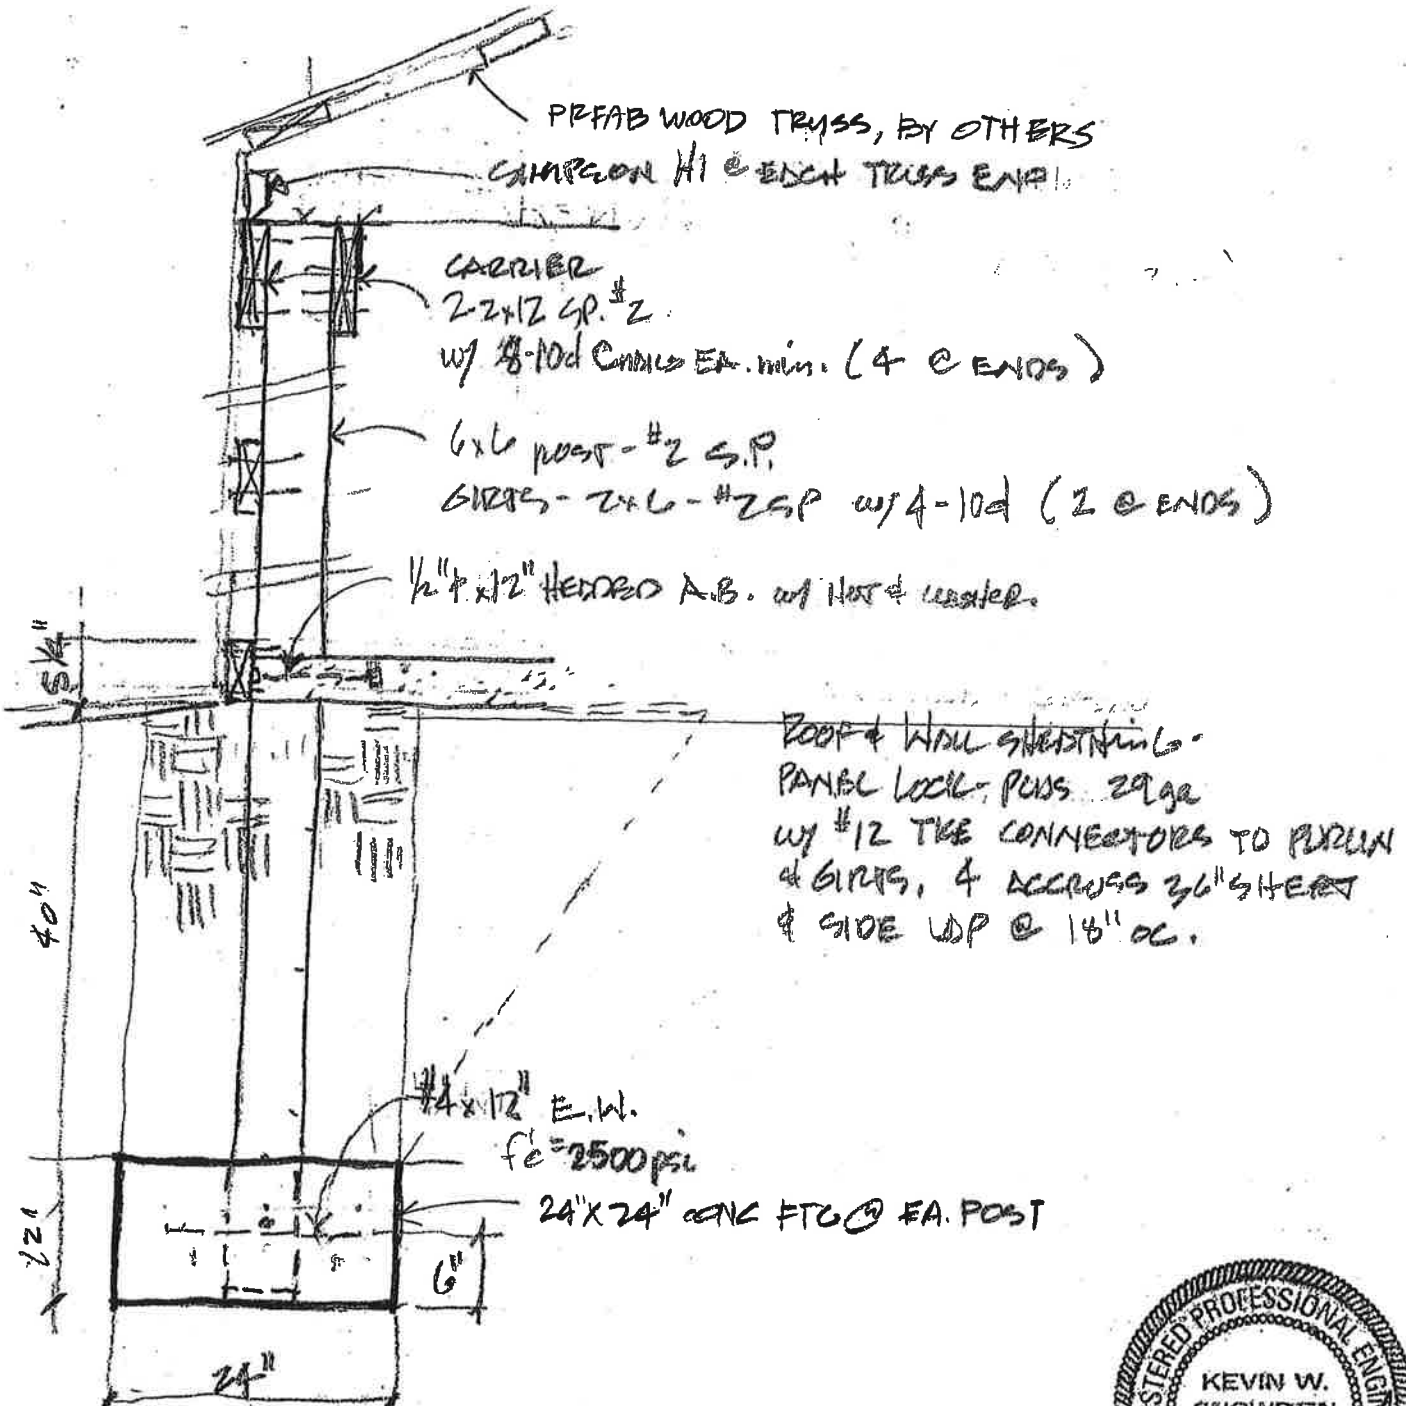 PRFAB WOOD TRUSS, BY OTHERS
SIMPSON H1 @ EACH TRUSS END
CARRIER
2-2x12 SP. #2
w/ 8-10d EA. min. (4 @ ENDS)
6x6 POST - #2 S.P.
GIRTS - 2x6 - #2 SP w/ 4-10d (2 @ ENDS)
1/2" x 12" HEADED A.B. w/ NUT & WASHER.
5 1/4"
ROOF & WALL SHEATHING -
PANEL LOCK-PLUS 29ga
w/ #12 CONNECTORS TO PURLIN
& GIRTS, 4 ACCROSS 36" SHEET
& SIDE LAP @ 18" OC.
40"
#4 x 12" E.W.
f'c = 2500 psi
24" X 24" CONC FTG @ EA. POST
12"
6"
24"
PROFESSIONAL
KEVIN W.